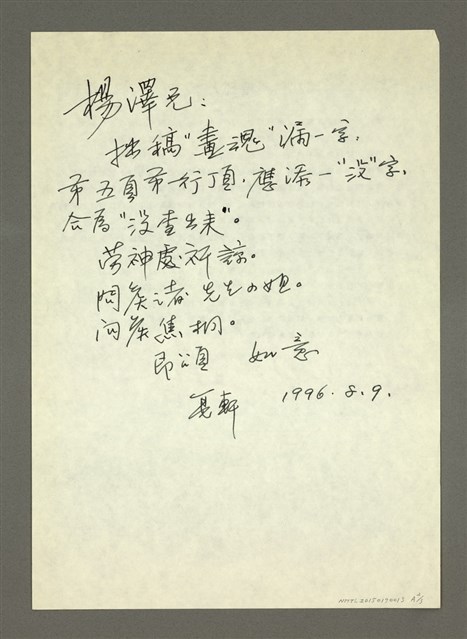 楊澤兄：
拙稿"畫魂"漏一字，
第五頁第一行頂，應添一"没"字，
全爲"没查出来"。
勞神處祈諒。
問候諸先生小姐。
問候焦桐。
即頌 如意
1996.8.9.